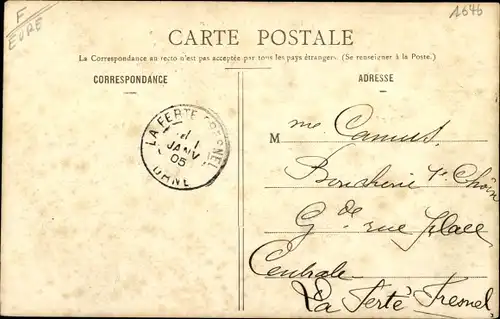 F
EURE
1646
CARTE POSTALE
La Correspondance au recto n'est pas acceptée par tous les pays étrangers. (Se renseigner à la Poste.)
CORRESPONDANCE
ADRESSE
LA FERTE FRESNEL
JANV
05
ORNE
M me Camus
Boucherie 1er Choix
Gde rue Place
Centrale
La Ferté Fresnel